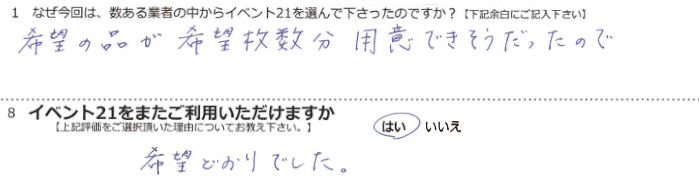 1 なぜ今回は、数ある業者の中からイベント21を選んで下さったのですか？【下記余白にご記入下さい】
希望の品が 希望枚数分 用意できそうだったので
8 イベント21をまたご利用いただけますか
【上記評価をご選択頂いた理由についてお教え下さい。】 はい いいえ
希望どおりでした。